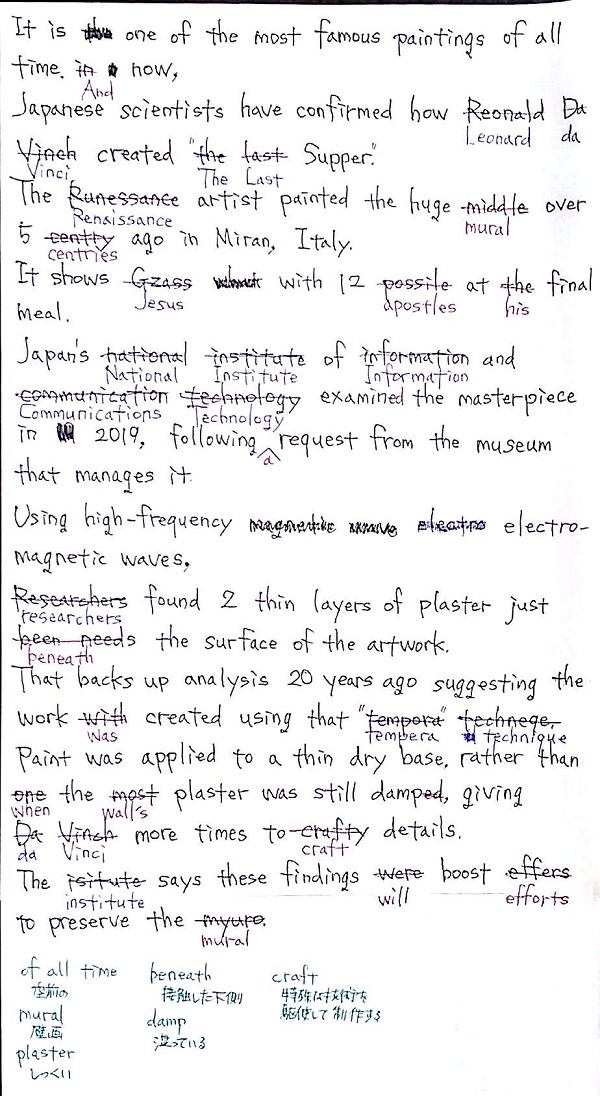 It is one of the most famous paintings of all
time. in now,
And
Japanese scientists have confirmed how Reonald Da
Leonard da
Vinch created "the last Supper."
Vinci The Last
The Runessance artist painted the huge middle over
Renaissance mural
5 centry ago in Miran, Italy.
centries
It shows Gzass what with 12 possile at the final
Jesus apostles his
meal.
Japan's national institute of information and
National Institute Information
communication technology examined the masterpiece
Communications Technology
in 2019, following request from the museum
a
that manages it.
Using high-frequency magnetic wave electro electro-
magnetic waves,
Researchers found 2 thin layers of plaster just
researchers
been needs the surface of the artwork.
beneath
That backs up analysis 20 years ago suggesting the
work with created using that "tempora" technege,
was tempera technique
Paint was applied to a thin dry base, rather than
one the most plaster was still damped, giving
when wall's
Da Vinch more times to crafty details.
da Vinci craft
The isitute says these findings were boost effers
institute will efforts
to preserve the myuro.
mural
of all time beneath craft
空前の 接触した下側 特殊な技術を
mural damp 駆使して制作する
壁画 湿っている
plaster
しっくい